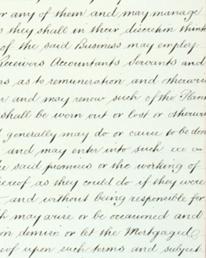 or any of them and may manage
as they shall in their discretion think
of the said Business may employ
Receivers Accountants Servants and
as to remuneration and otherwise
and may renew such of the Plant
shall be worn out or lost or otherwise
generally may do or cause to be done
and may enter into such
the said premises or the working of
thereof as they could do if they were
and without being responsible for
may arise or be occasioned and
demise or let the Mortgaged
upon such terms and subject